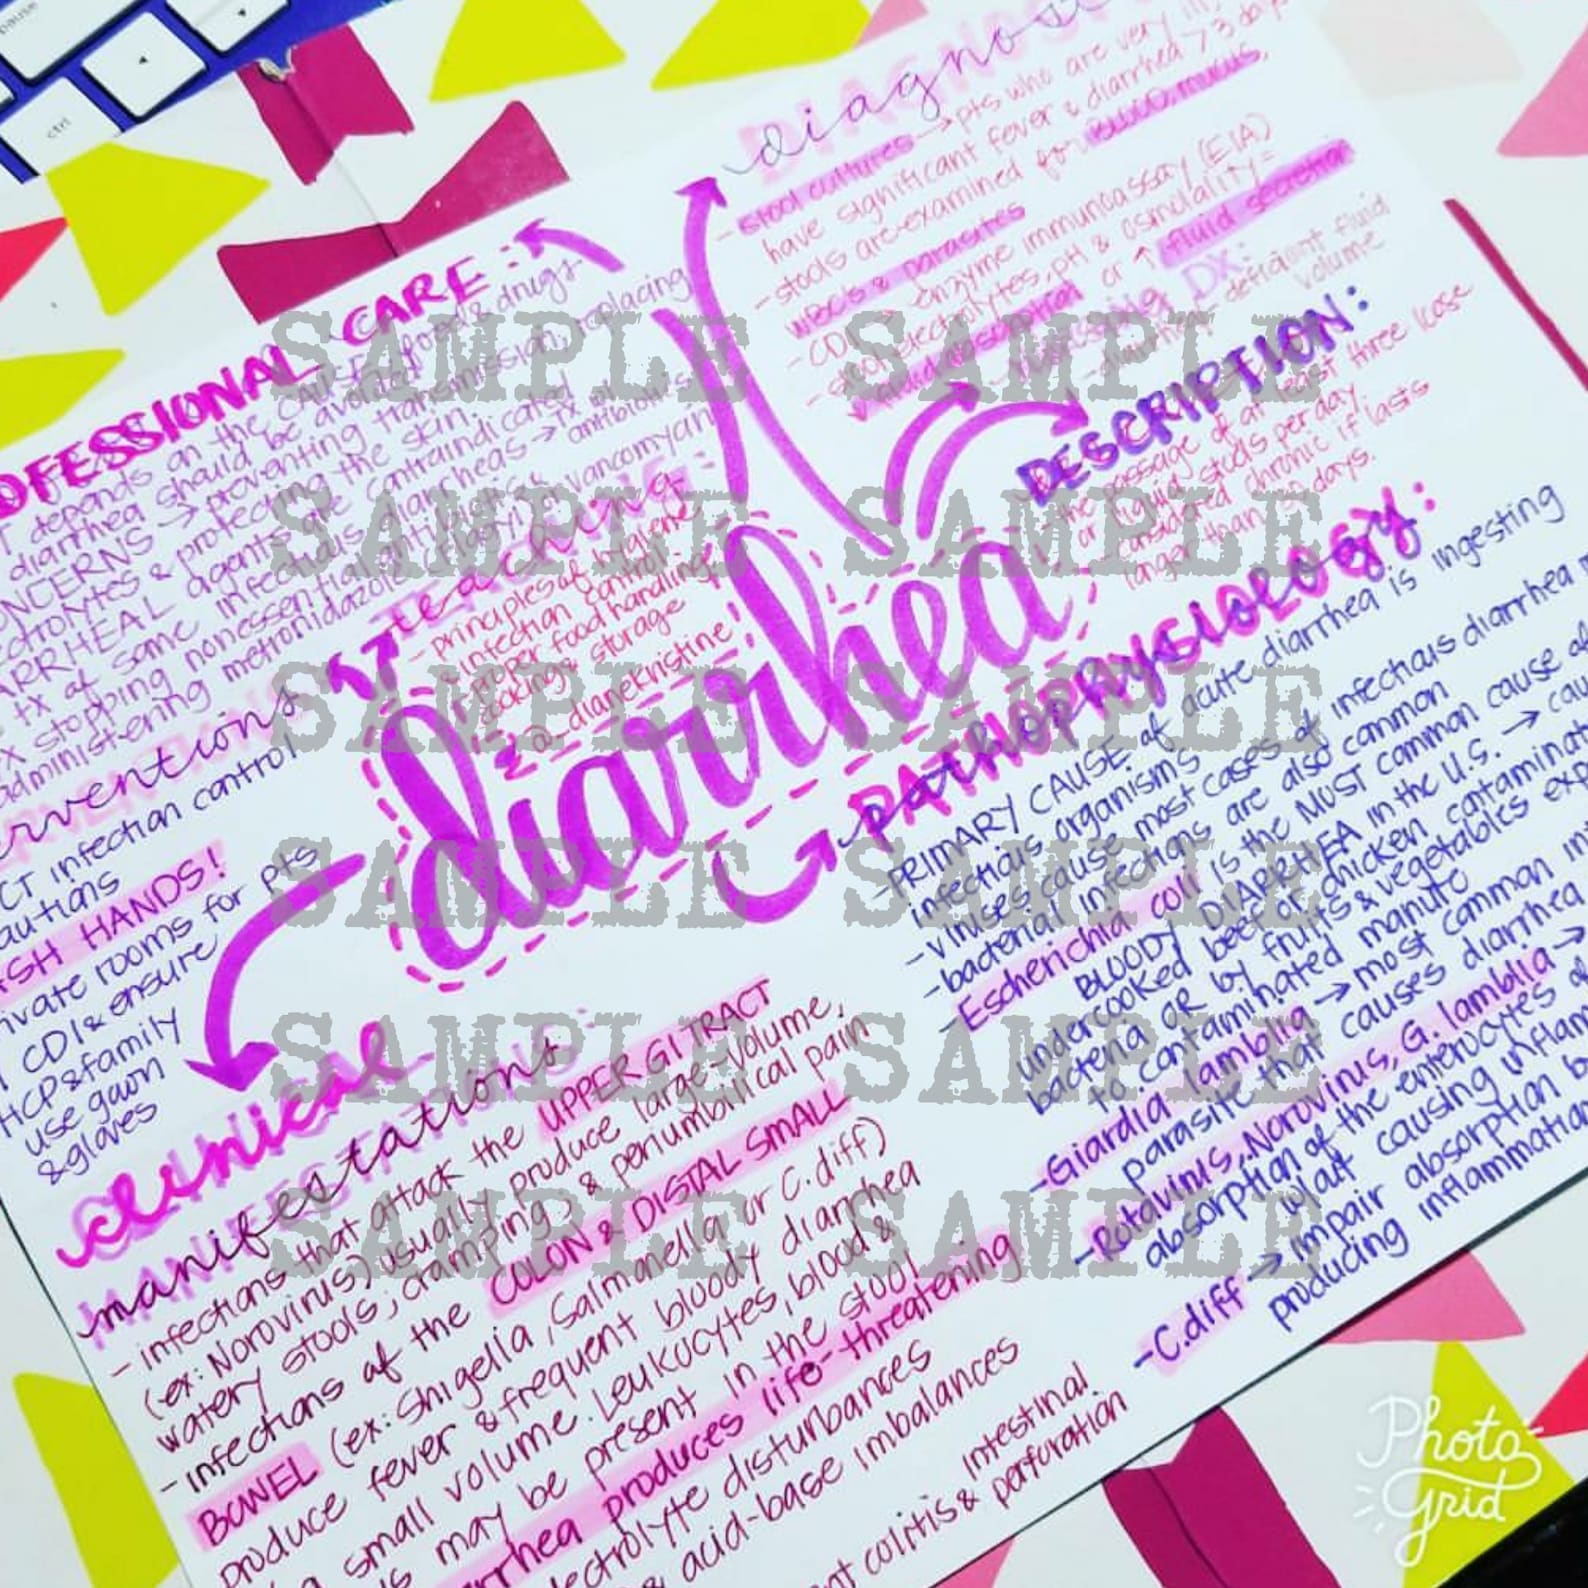 pause
ctrl
diagnos
- stool cultures → pts who are very ill,
have significant fever & diarrhea > 3 days
- stools are examined for BLOOD, mucus,
WBC's & parasites
- CDI → enzyme immunoassay (EIA)
- stool electrolytes, pH & osmolality =
↓ fluid absorption or ↑ fluid secretion
NURSING DX:
- diarrhea - deficient fluid
volume
DESCRIPTION:
- the passage of at least three loose
or liquid stools per day.
- considered chronic if lasts
longer than 30 days.
OFESSIONAL CARE:
depends on the CAUSE - food & drugs
diarrhea should be avoided
ONCERNS → preventing transmission, replacing
ectrolytes & protecting the skin.
ARRHEAL agents are contraindicated
tx of some infectious diarrheas → tx w/
stopping nonessential antibiotics antibiotics
administering metronidazole (Flagyl) or vancomycin
teaching:
- principles of hygiene
& infection control
- proper food handling
cooking & storage
dianekristine
diarrhea
PATHOPHYSIOLOGY:
- PRIMARY CAUSE of acute diarrhea is ingesting
infectious organisms
- viruses cause most cases of infectious diarrhea
- bacterial infections are also common
- Escherichia coli is the MOST common cause of
BLOODY DIARRHEA in the U.S. →
undercooked beef or chicken contaminat
bacteria OR by fruits & vegetables exp
to contaminated manure
- Giardia lamblia → most common in
parasite that causes diarrhea
- Rotavirus, Norovirus, G. lamblia →
absorption of the enterocytes of
w/out causing inflam
- C.diff → impair absorption b
producing inflammation
erventions
CT infection control
autions
SH HANDS!
ivate rooms for pts
CDI & ensure
HCP & family
use gown
& gloves
clinical
manifestations:
- infections that attack the UPPER GI TRACT
(ex: Norovirus) usually produce large-volume,
watery stools, cramping, & periumbilical pain
- infections of the COLON & DISTAL SMALL
BOWEL (ex: Shigella, Salmonella or C.diff)
produce fever & frequent bloody diarrhea
small volume. Leukocytes, blood &
may be present in the stool
rrhea produces life-threatening
ectrolyte disturbances
& acid-base imbalances
colitis & intestinal
perforation
SAMPLE SAMPLE
SAMPLE SAMPLE
SAMPLE SAMPLE
SAMPLE SAMPLE
SAMPLE SAMPLE
SAMPLE SAMPLE
Photo
Grid